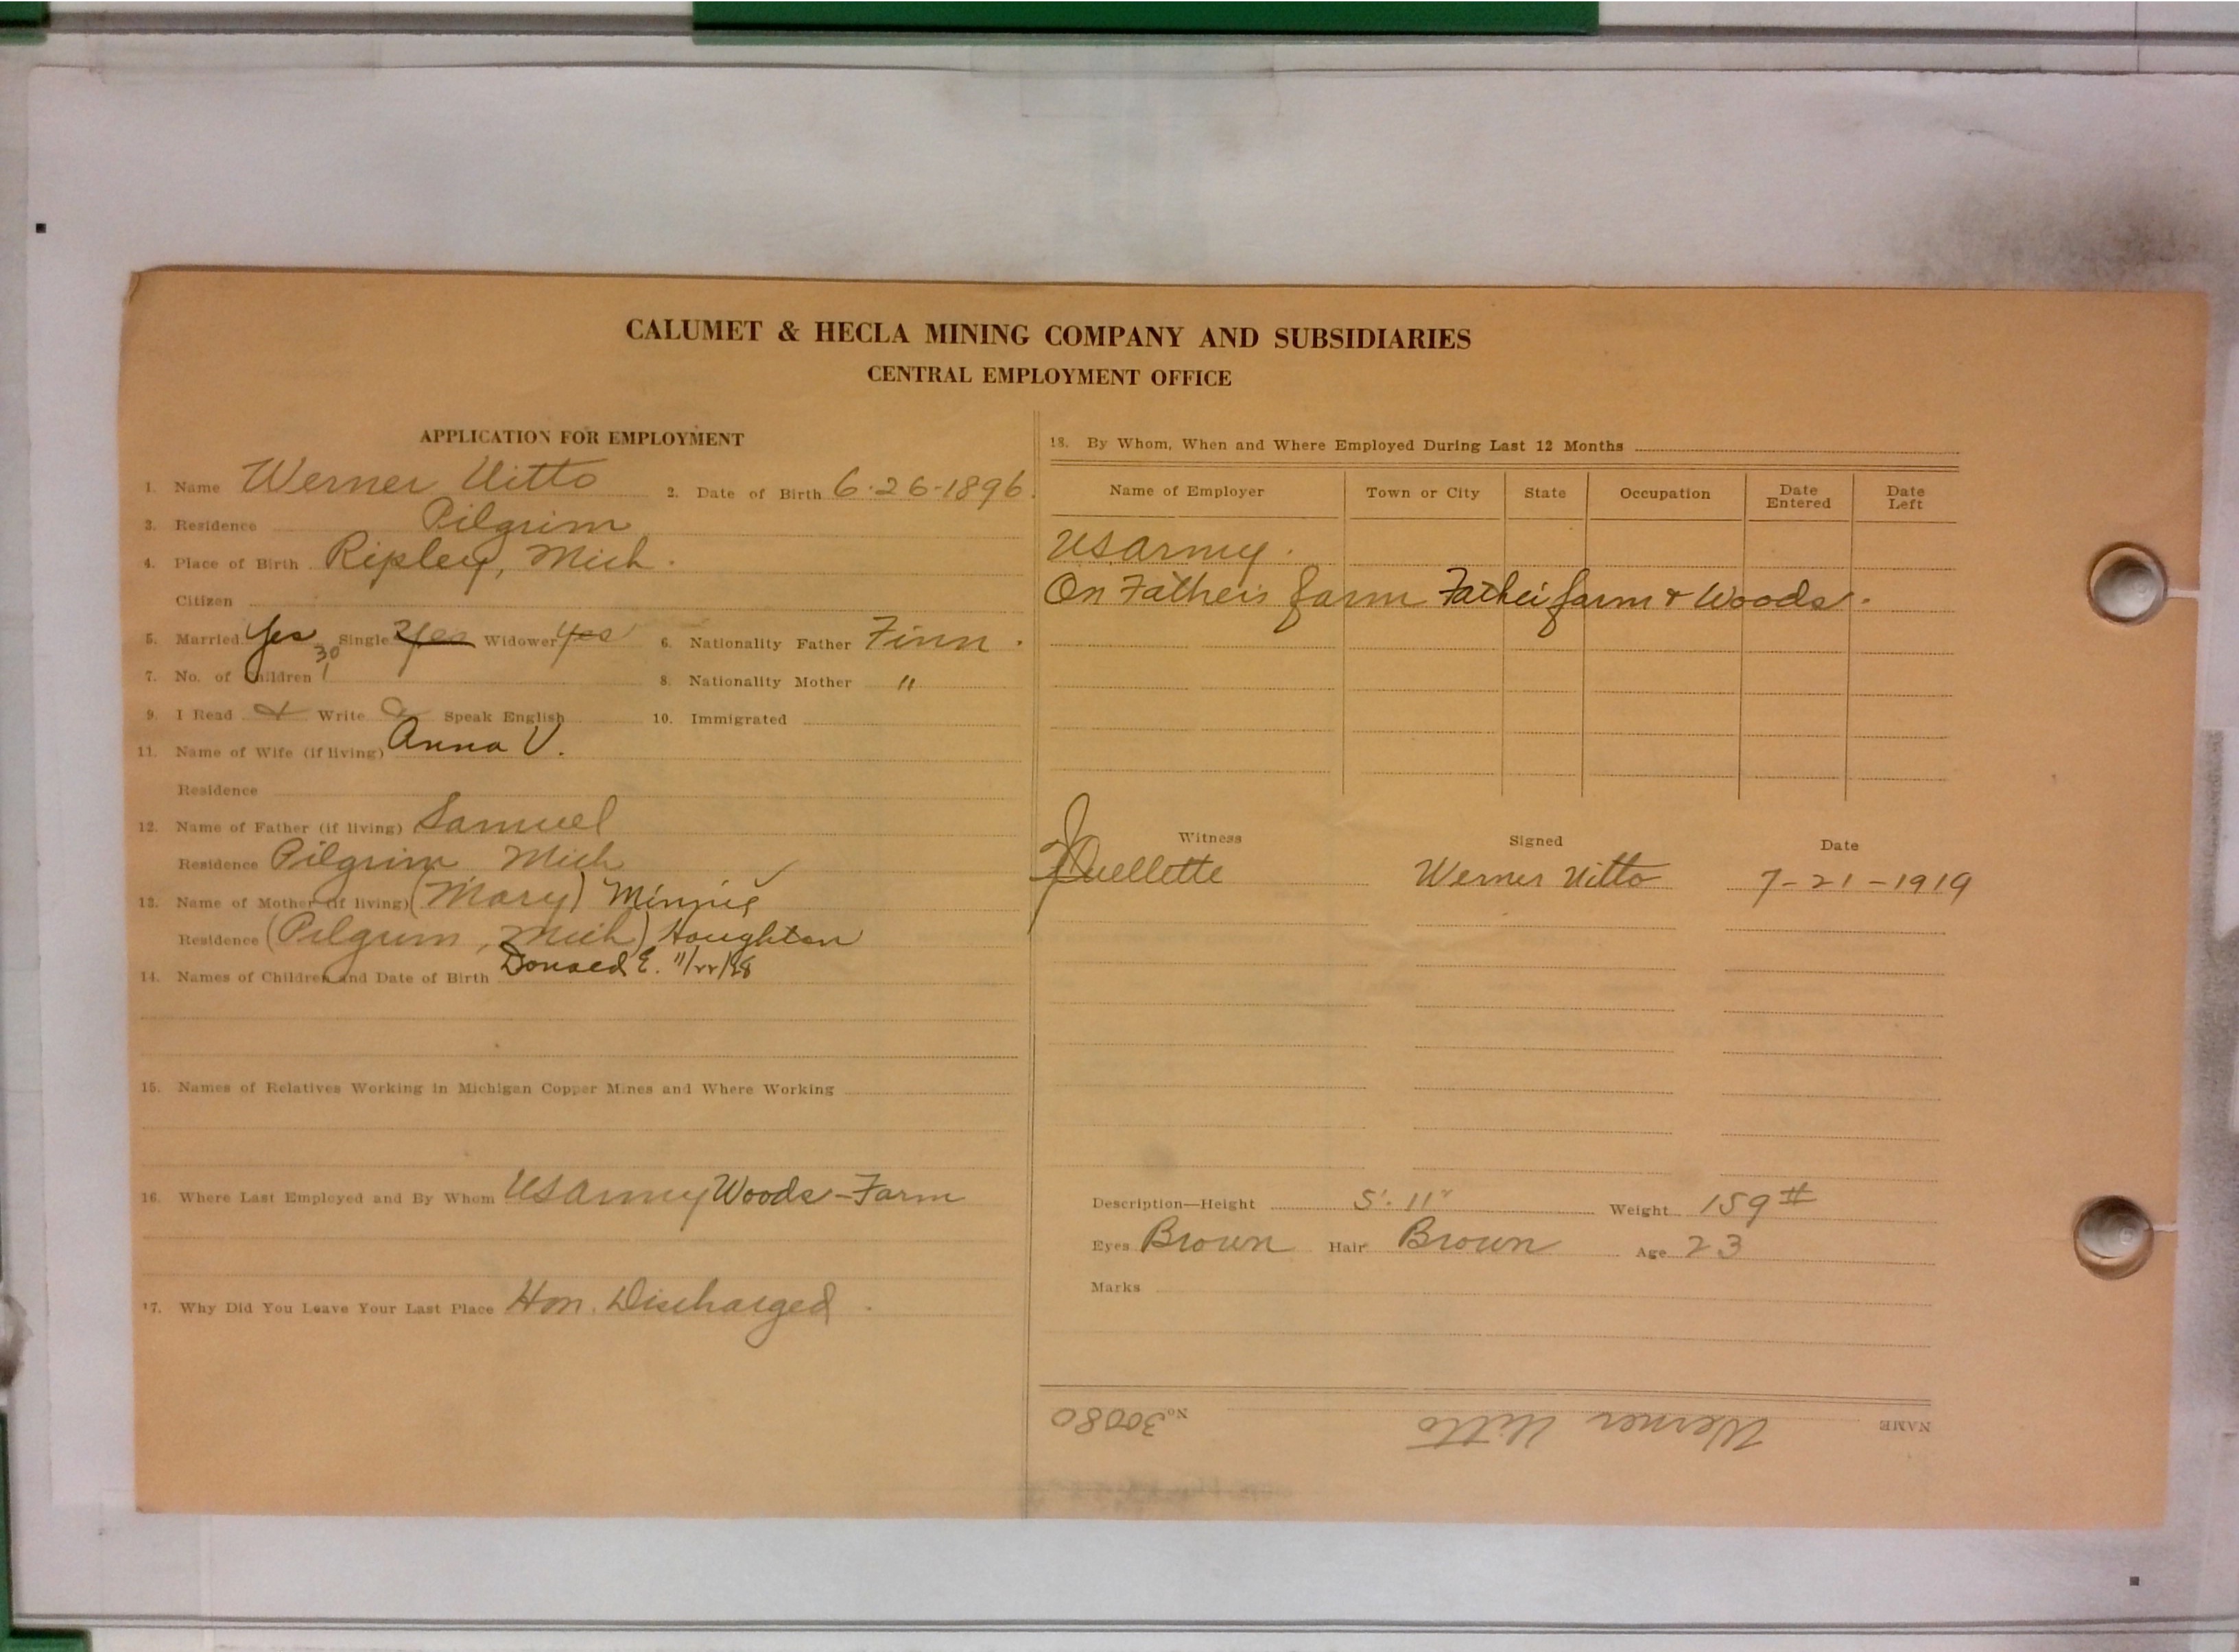 CALUMET & HECLA MINING COMPANY AND SUBSIDIARIES
CENTRAL EMPLOYMENT OFFICE
APPLICATION FOR EMPLOYMENT
1. Name Werner Uitto 2. Date of Birth 6-26-1896.
3. Residence Pilgrim
4. Place of Birth Ripley, Mich.
Citizen
5. Married Yes Single Yes Widower Yes 6. Nationality Father Finn.
30
7. No. of Children 1 8. Nationality Mother "
9. I Read Write Speak English 10. Immigrated
11. Name of Wife (if living) Anna V.
Residence
12. Name of Father (if living) Samuel
Residence Pilgrim Mich
13. Name of Mother (if living) (Mary) Minnie
Residence (Pilgrim, Mich) Houghton
14. Names of Children and Date of Birth Donald E.
15. Names of Relatives Working in Michigan Copper Mines and Where Working
16. Where Last Employed and By Whom US Army Woods - Farm
17. Why Did You Leave Your Last Place Hon. Discharged.
18. By Whom, When and Where Employed During Last 12 Months
Name of Employer Town or City State Occupation Date Entered Date Left
US Army.
On Fathers farm Father farm & Woods.
Witness Signed Date
Ouellette Werner Uitto 7-21-1919
Description—Height 5'. 11" Weight 159 #
Eyes Brown Hair Brown Age 23
Marks
NAME Werner Uitto No. 30080